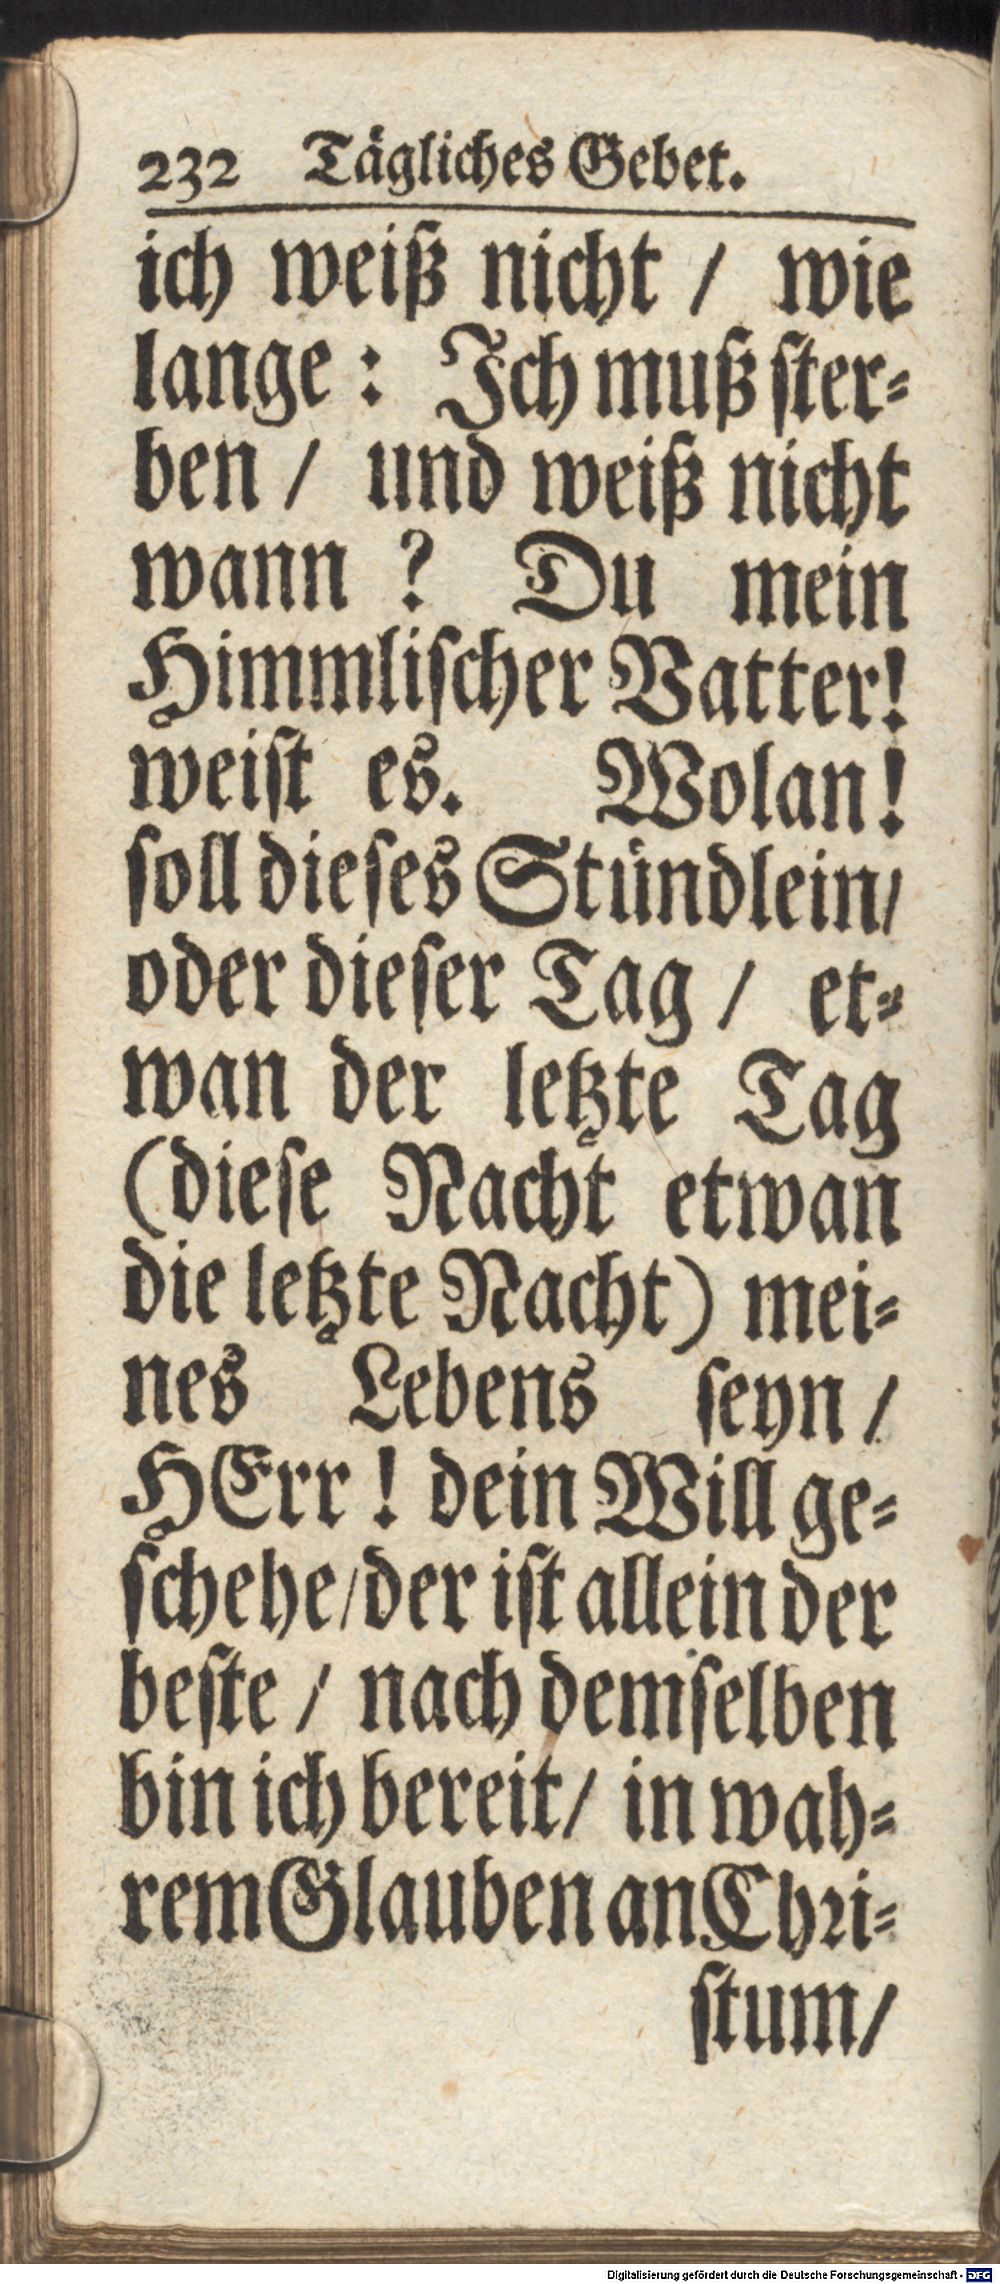 232 Tägliches Gebet.
ich weiß nicht / wie
lange : Ich muß ster⸗
ben / und weiß nicht
wann ? Du mein
Himmlischer Vatter!
weist es. Wolan!
soll dieses Stündlein/
oder dieser Tag / et⸗
wan der letzte Tag
(diese Nacht etwan
die letzte Nacht) mei⸗
nes Lebens seyn /
HErr ! dein Will ge⸗
schehe/der ist allein der
beste / nach demselben
bin ich bereit/ in wah⸗
rem Glauben an Chri⸗
stum/
Digitalisierung gefördert durch die Deutsche Forschungsgemeinschaft - DFG